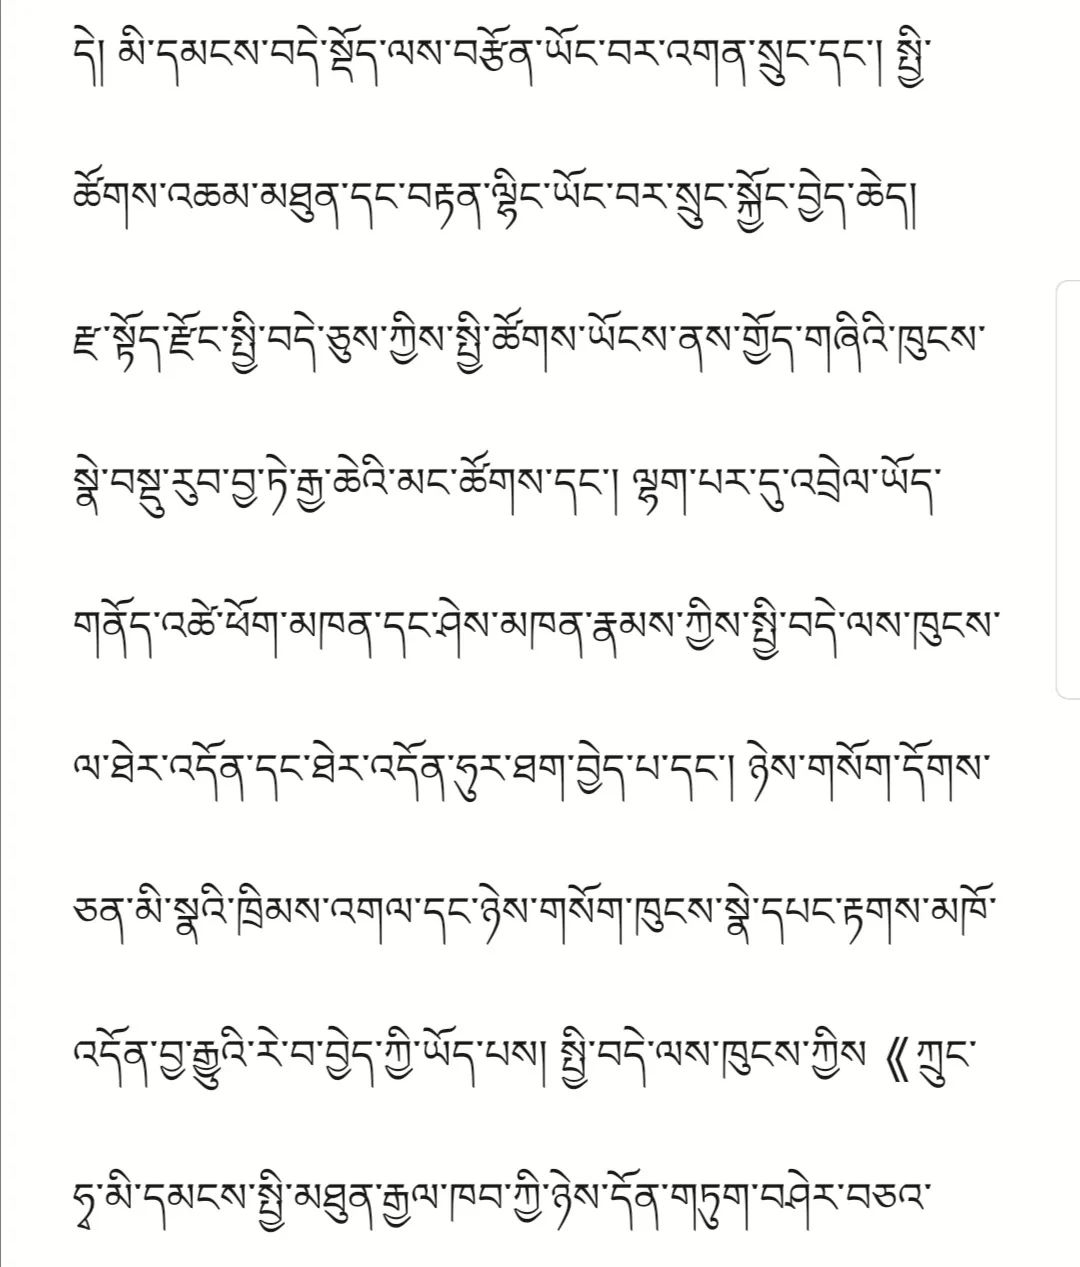 དེ། མི་དམངས་བདེ་སྡོད་ལས་བརྩོན་ཡོང་བར་འགན་སྲུང་དང་། སྤྱི་
ཚོགས་འཆམ་མཐུན་དང་བརྟན་ལྷིང་ཡོང་བར་སྲུང་སྐྱོང་བྱེད་ཆེད།
རྫ་སྟོད་རྫོང་སྤྱི་བདེ་ཅུས་ཀྱིས་སྤྱི་ཚོགས་ཡོངས་ནས་གྱོད་གཞིའི་ཁུངས་
སྣེ་བསྡུ་རུབ་བྱ་ཏེ་རྒྱ་ཆེའི་མང་ཚོགས་དང་། ལྷག་པར་དུ་འབྲེལ་ཡོད་
གནོད་འཚེ་ཕོག་མཁན་དང་ཤེས་མཁན་རྣམས་ཀྱིས་སྤྱི་བདེ་ལས་ཁུངས་
ལ་ཐེར་འདོན་དང་ཐེར་འདོན་ཧུར་ཐག་བྱེད་པ་དང་། ཉེས་གསོག་དོགས་
ཅན་མི་སྣའི་ཁྲིམས་འགལ་དང་ཉེས་གསོག་ཁུངས་སྣེ་དཔང་རྟགས་མཁོ་
འདོན་བྱ་རྒྱུའི་རེ་བ་བྱེད་ཀྱི་ཡོད་པས། སྤྱི་བདེ་ལས་ཁུངས་ཀྱིས《 ཀྲུང་
ཧྭ་མི་དམངས་སྤྱི་མཐུན་རྒྱལ་ཁབ་ཀྱི་ཉེས་དོན་གཏུག་བཤེར་བཅའ་